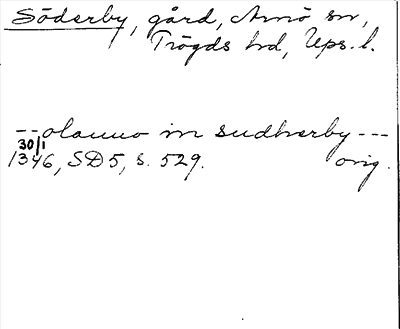 Söderby, gård, Arnö sn,
Trögds hd, Ups. l.
-- olauuo in sudherby ---
30/1
1346, SD 5, s. 529. orig.